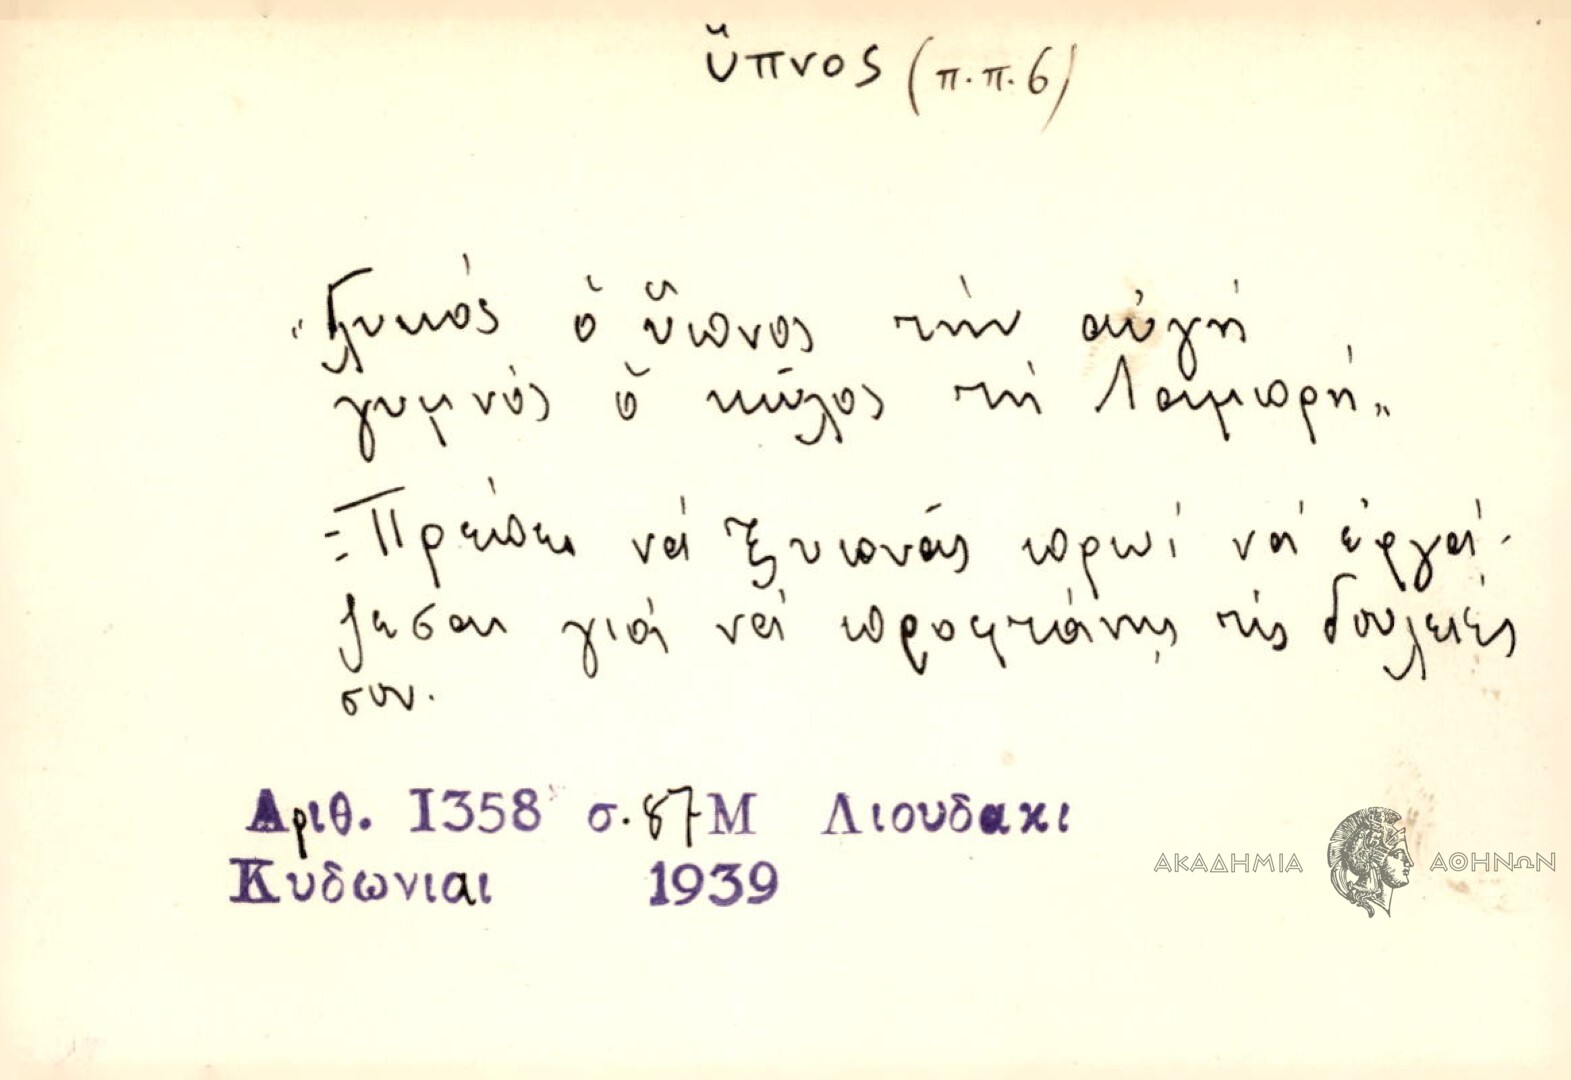 ὕπνος (π.π.6)
"Γλυκὸς ὁ ὕπνος τὴν αὐγή
γυμνὸς ὁ κῶλος τὴ Λαμπρή"
= Πρέπει νά ξυπνᾶς πρωί νά ἐργά-
ζεσαι γιά νά προφτάνῃς τὶς δουλειές
σου.
Αριθ. Ι358 σ. 87 Μ Λιουδακι
Κυδωνιαι 1939
ΑΚΑΔΗΜΙΑ ΑΘΗΝΩΝ